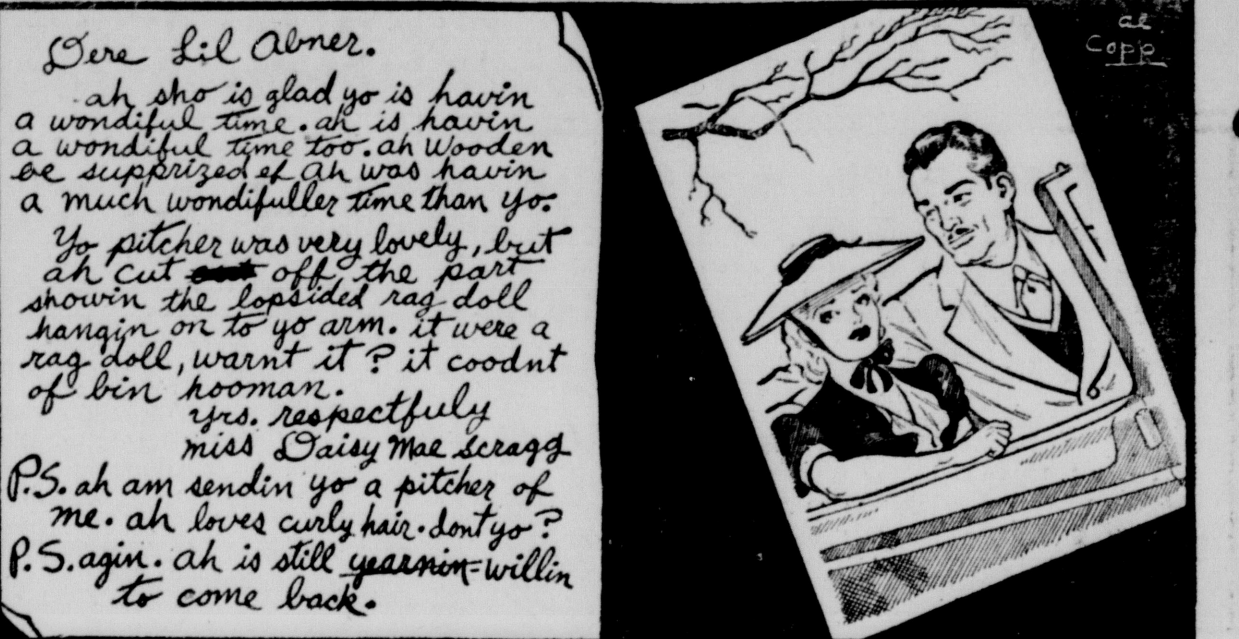 Dere Lil Abner.
ah sho is glad yo is havin
a wondiful time. ah is havin
a wondiful time too. ah wooden
be supprized ef ah was havin
a much wondifuller time than yo.
Yo pitcher was very lovely, but
ah cut out off the part
showin the lopsided rag doll
hangin on to yo arm. it were a
rag doll, warnt it? it coodnt
of bin hooman.
yrs. respectfuly
miss Daisy Mae Scragg
P.S. ah am sendin yo a pitcher of
me. ah loves curly hair. dont yo?
P.S. agin. ah is still yearnin=willin
to come back.
al
Capp